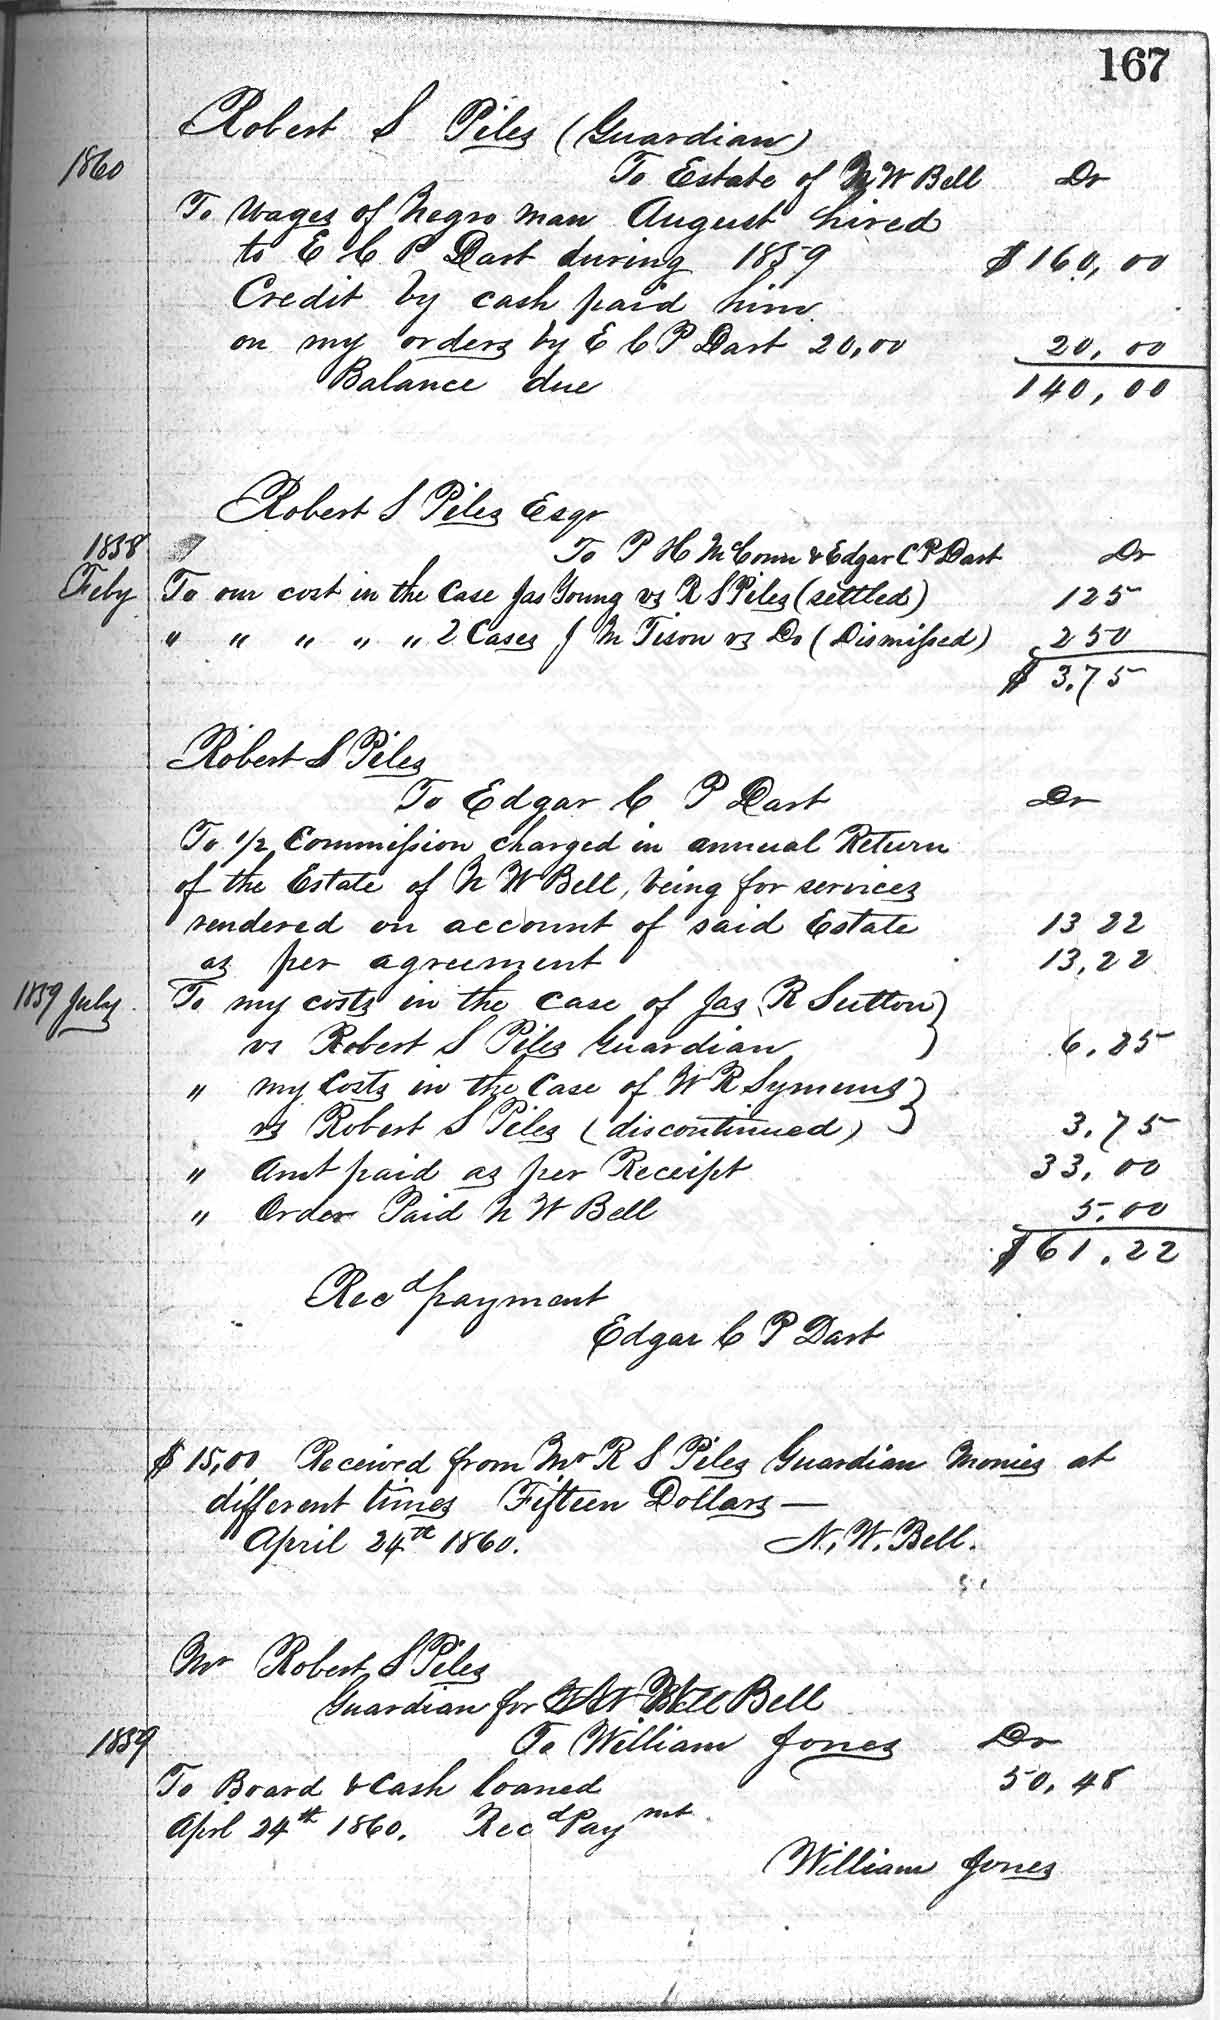 167
Robert S Piles (Guardian)
1860 To Estate of N W Bell Dr
To Wages of Negro man August hired
to E C P Dart during 1859 $160,00
Credit by cash paid him
on my orders by E C P Dart 20,00 20,00
Balance due 140,00
Robert S Piles Esqr
1858 To P H McConn & Edgar C P Dart Dr
Feby To our cost in the Case Jas Young vs R S Piles (settled) 125
" " " " " 2 Cases J M Tison vs Do (Dismissed) 250
$ 3.75
Robert S Piles
To Edgar C P Dart Dr
To 1/2 Commission charged in annual Return
of the Estate of N W Bell, being for services
rendered on account of said Estate 13 22
as per agreement 13,22
1859 July To my costs in the case of Jas R Sutton }
vs Robert S Piles Guardian 6.25
" my Costs in the Case of W R Symons }
vs Robert S Piles (discontinued) 3.75
" Amt paid as per Receipt 33,00
" Order Paid N W Bell 5.00
$61.22
Recd payment
Edgar C P Dart
$15,00 Received from Mr R S Piles Guardian Monies at
different times Fifteen Dollars —
April 24th 1860. N. W. Bell.
Mr Robert S Piles
Guardian for Bell
1859 To William Jones Dr
To Board & Cash loaned 50,48
Aprl 24th 1860. Recd Paymnt
William Jones